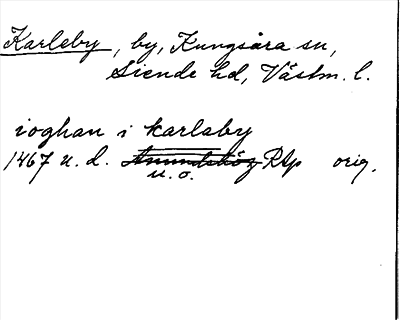 Karleby, by, Kungsåra sn,
Siende hd, Västm. l.
ioghan i karlaby
1467 u. d. Rap orig.
u. o.